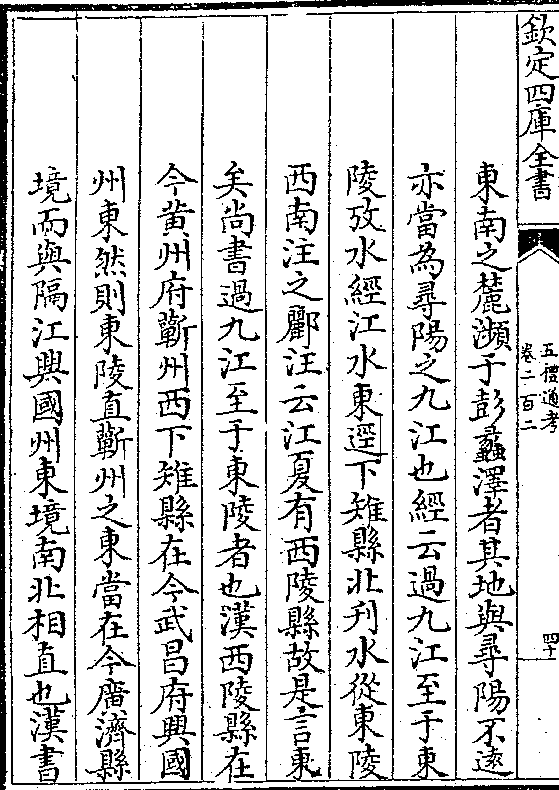 欽定四庫全書
五禮通考
卷二百二
四十
東南之麓瀕于彭蠡澤者其地與尋陽不遠
亦當為尋陽之九江也經云過九江至于東
陵攷水經江水東逕下雉縣北刋水從東陵
西南注之酈注云江夏有西陵縣故是言東
矣尚書過九江至于東陵者也漢西陵縣在
今黄州府蘄州西下雉縣在今武昌府興國
州東然則東陵直蘄州之東當在今廣濟縣
境而與隔江興國州東境南北相直也漢書